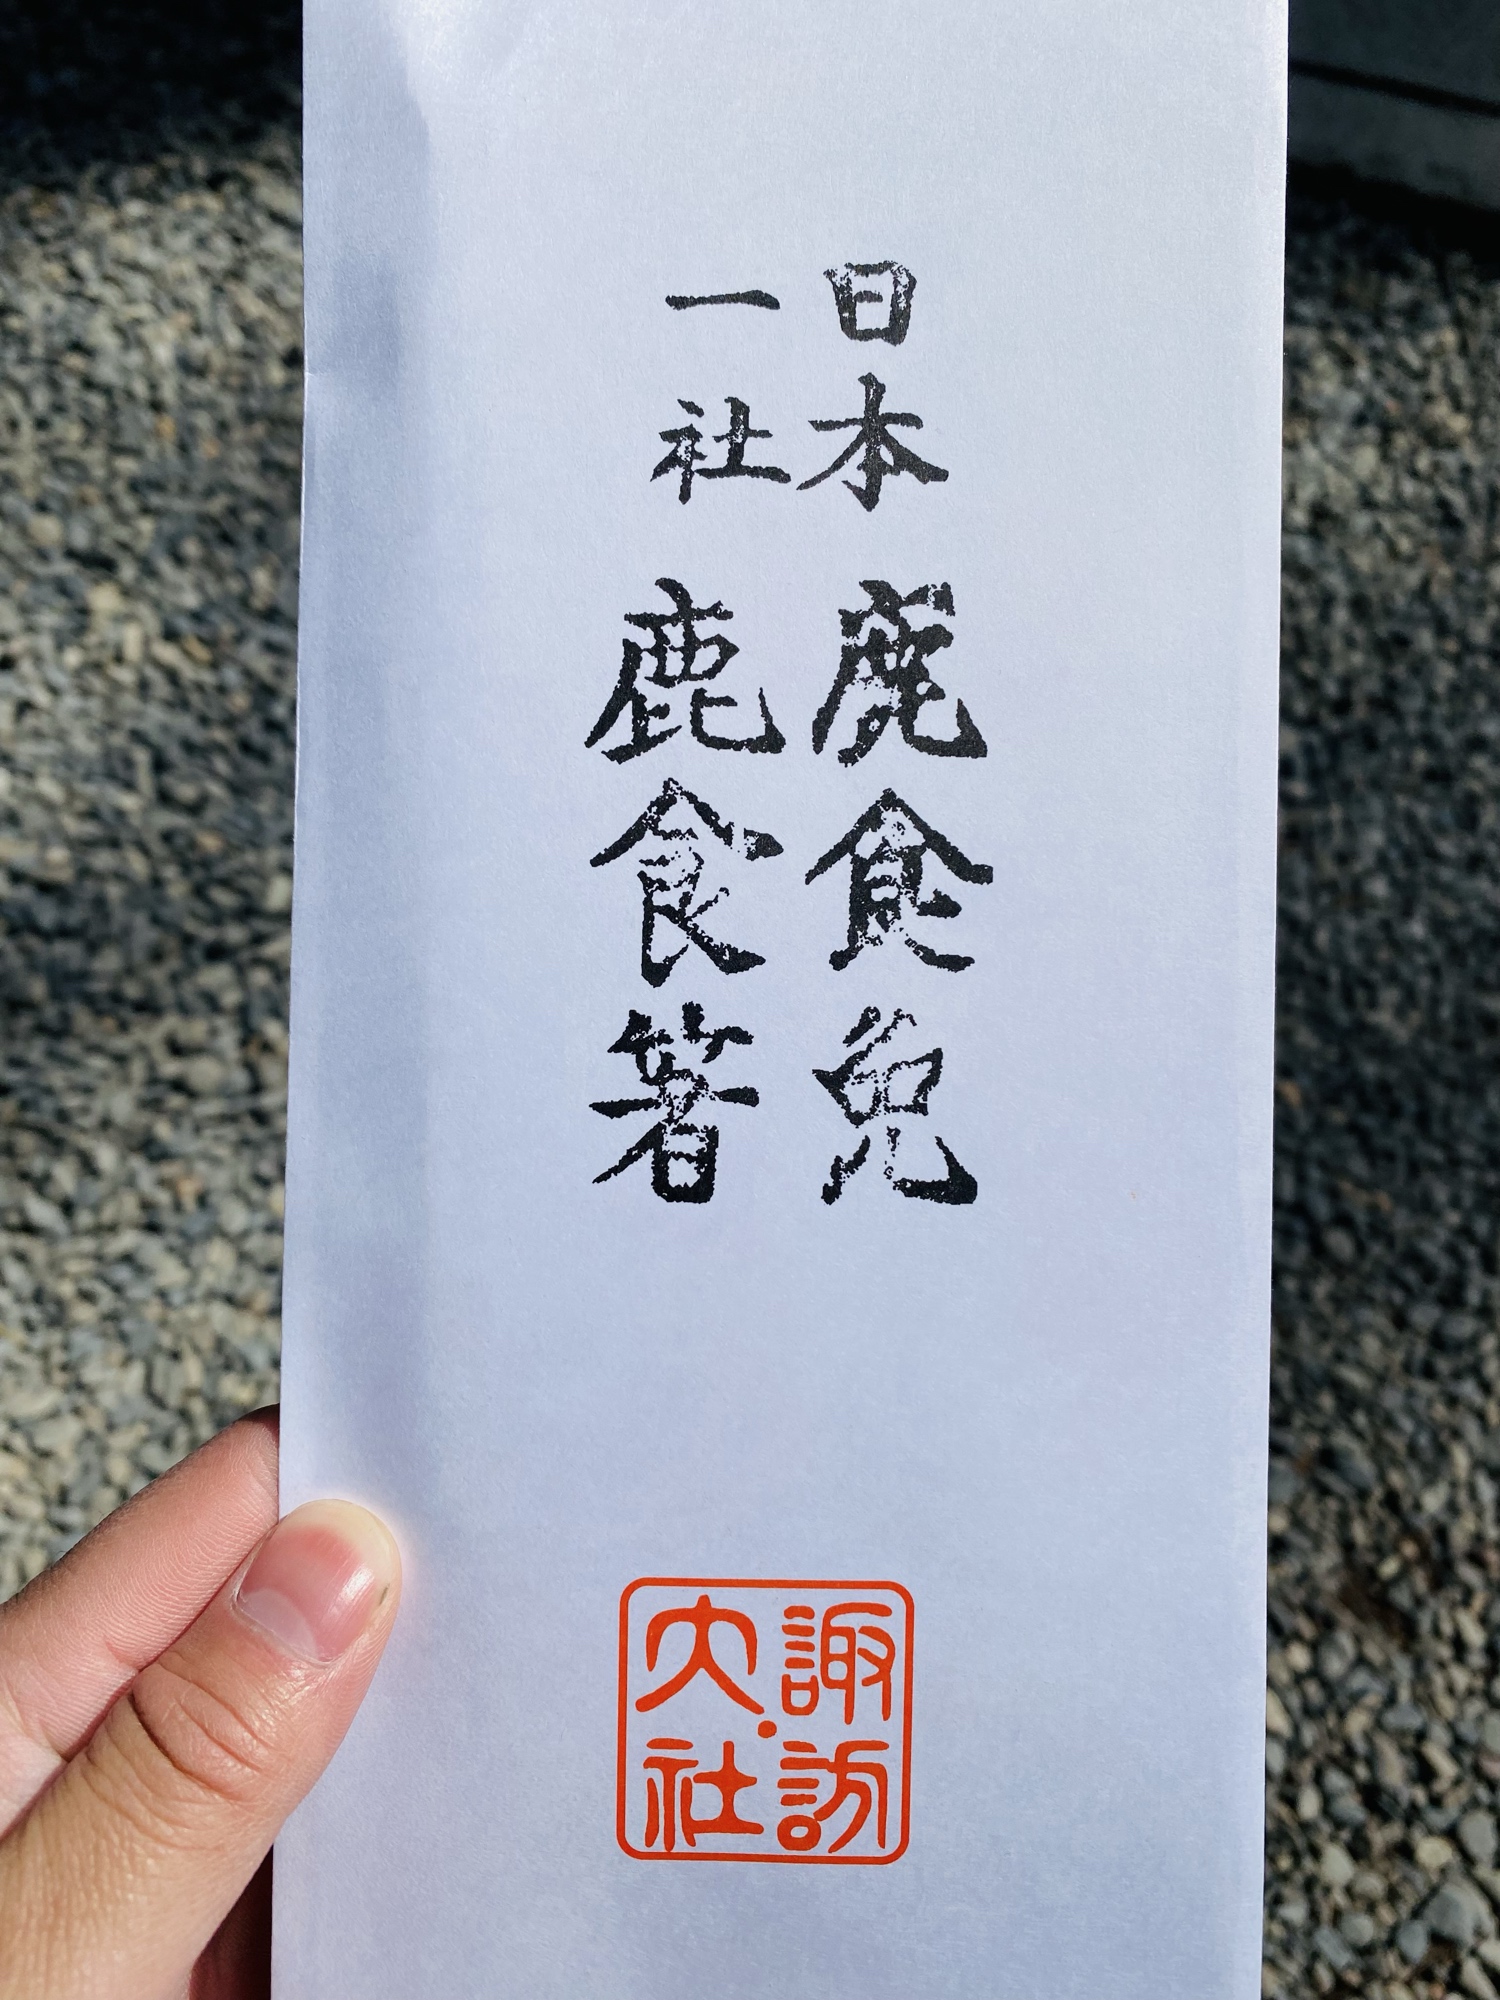 日本
一社
鹿食免
鹿食箸
諏訪
大社